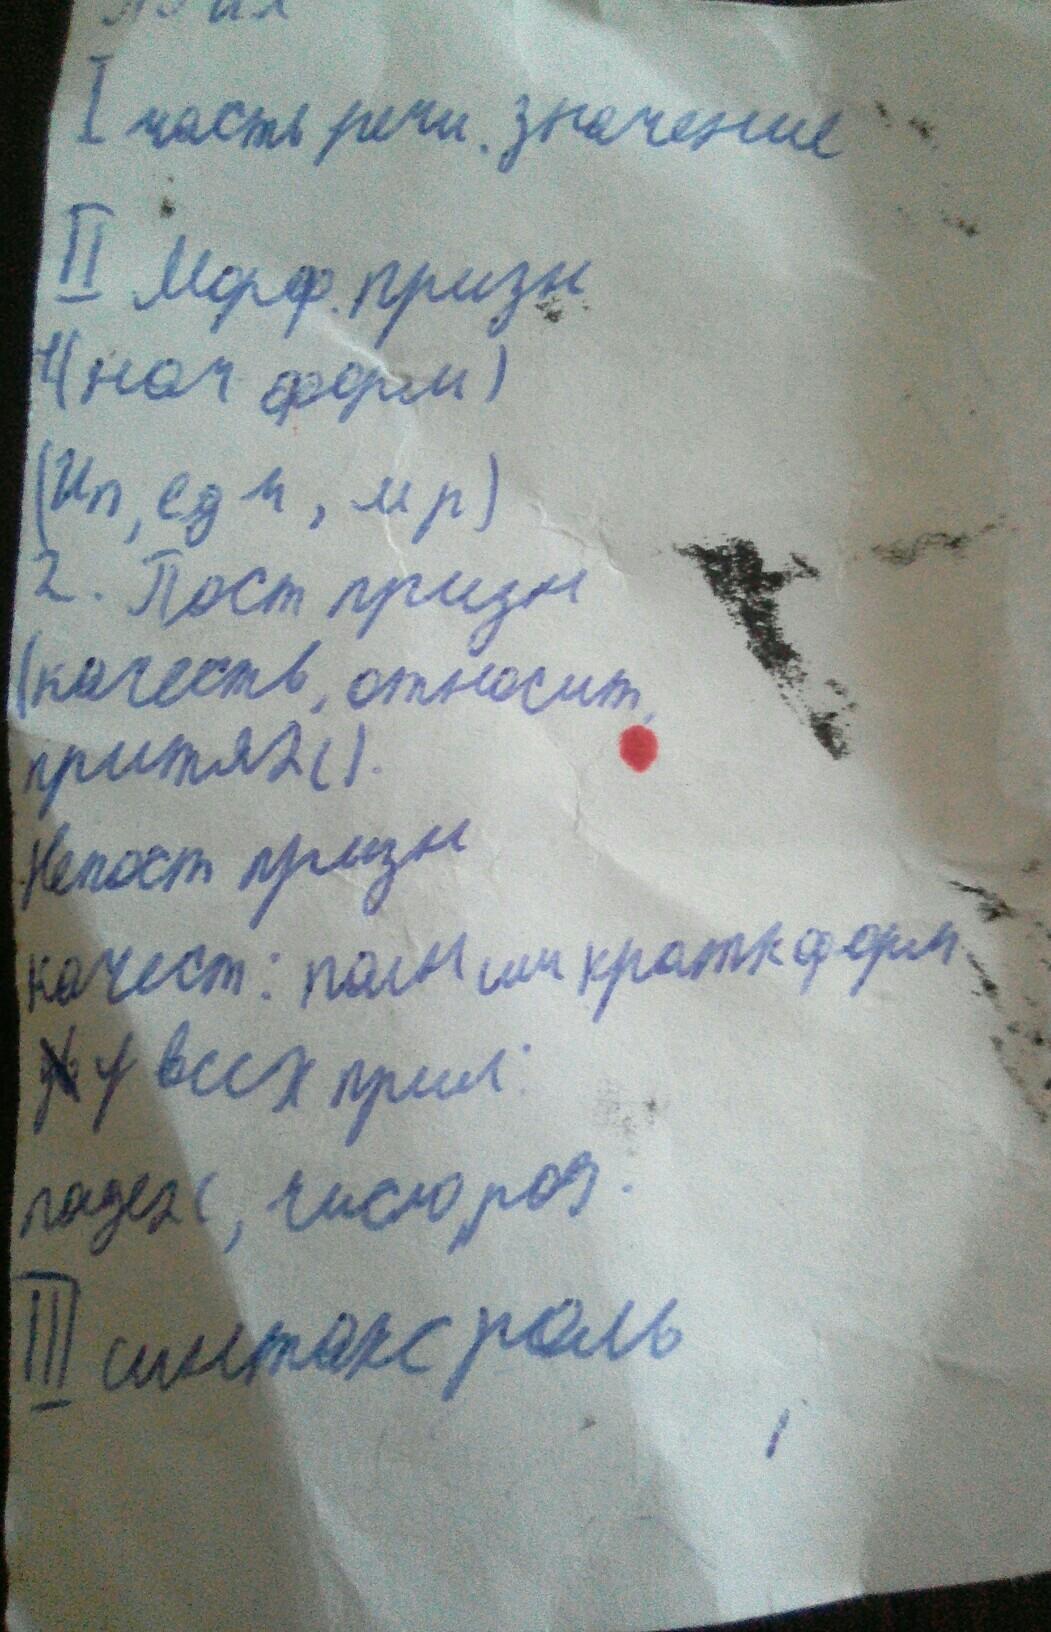 I часть речи. значение
II Морф. призн
1(нач форм)
(Ип, ед ч, м р)
2. Пост призн
(качеств, относит,
притяж).
Непост призн
качест: полн или кратк форм
у всех прил:
падеж, число, род.
III синтакс роль